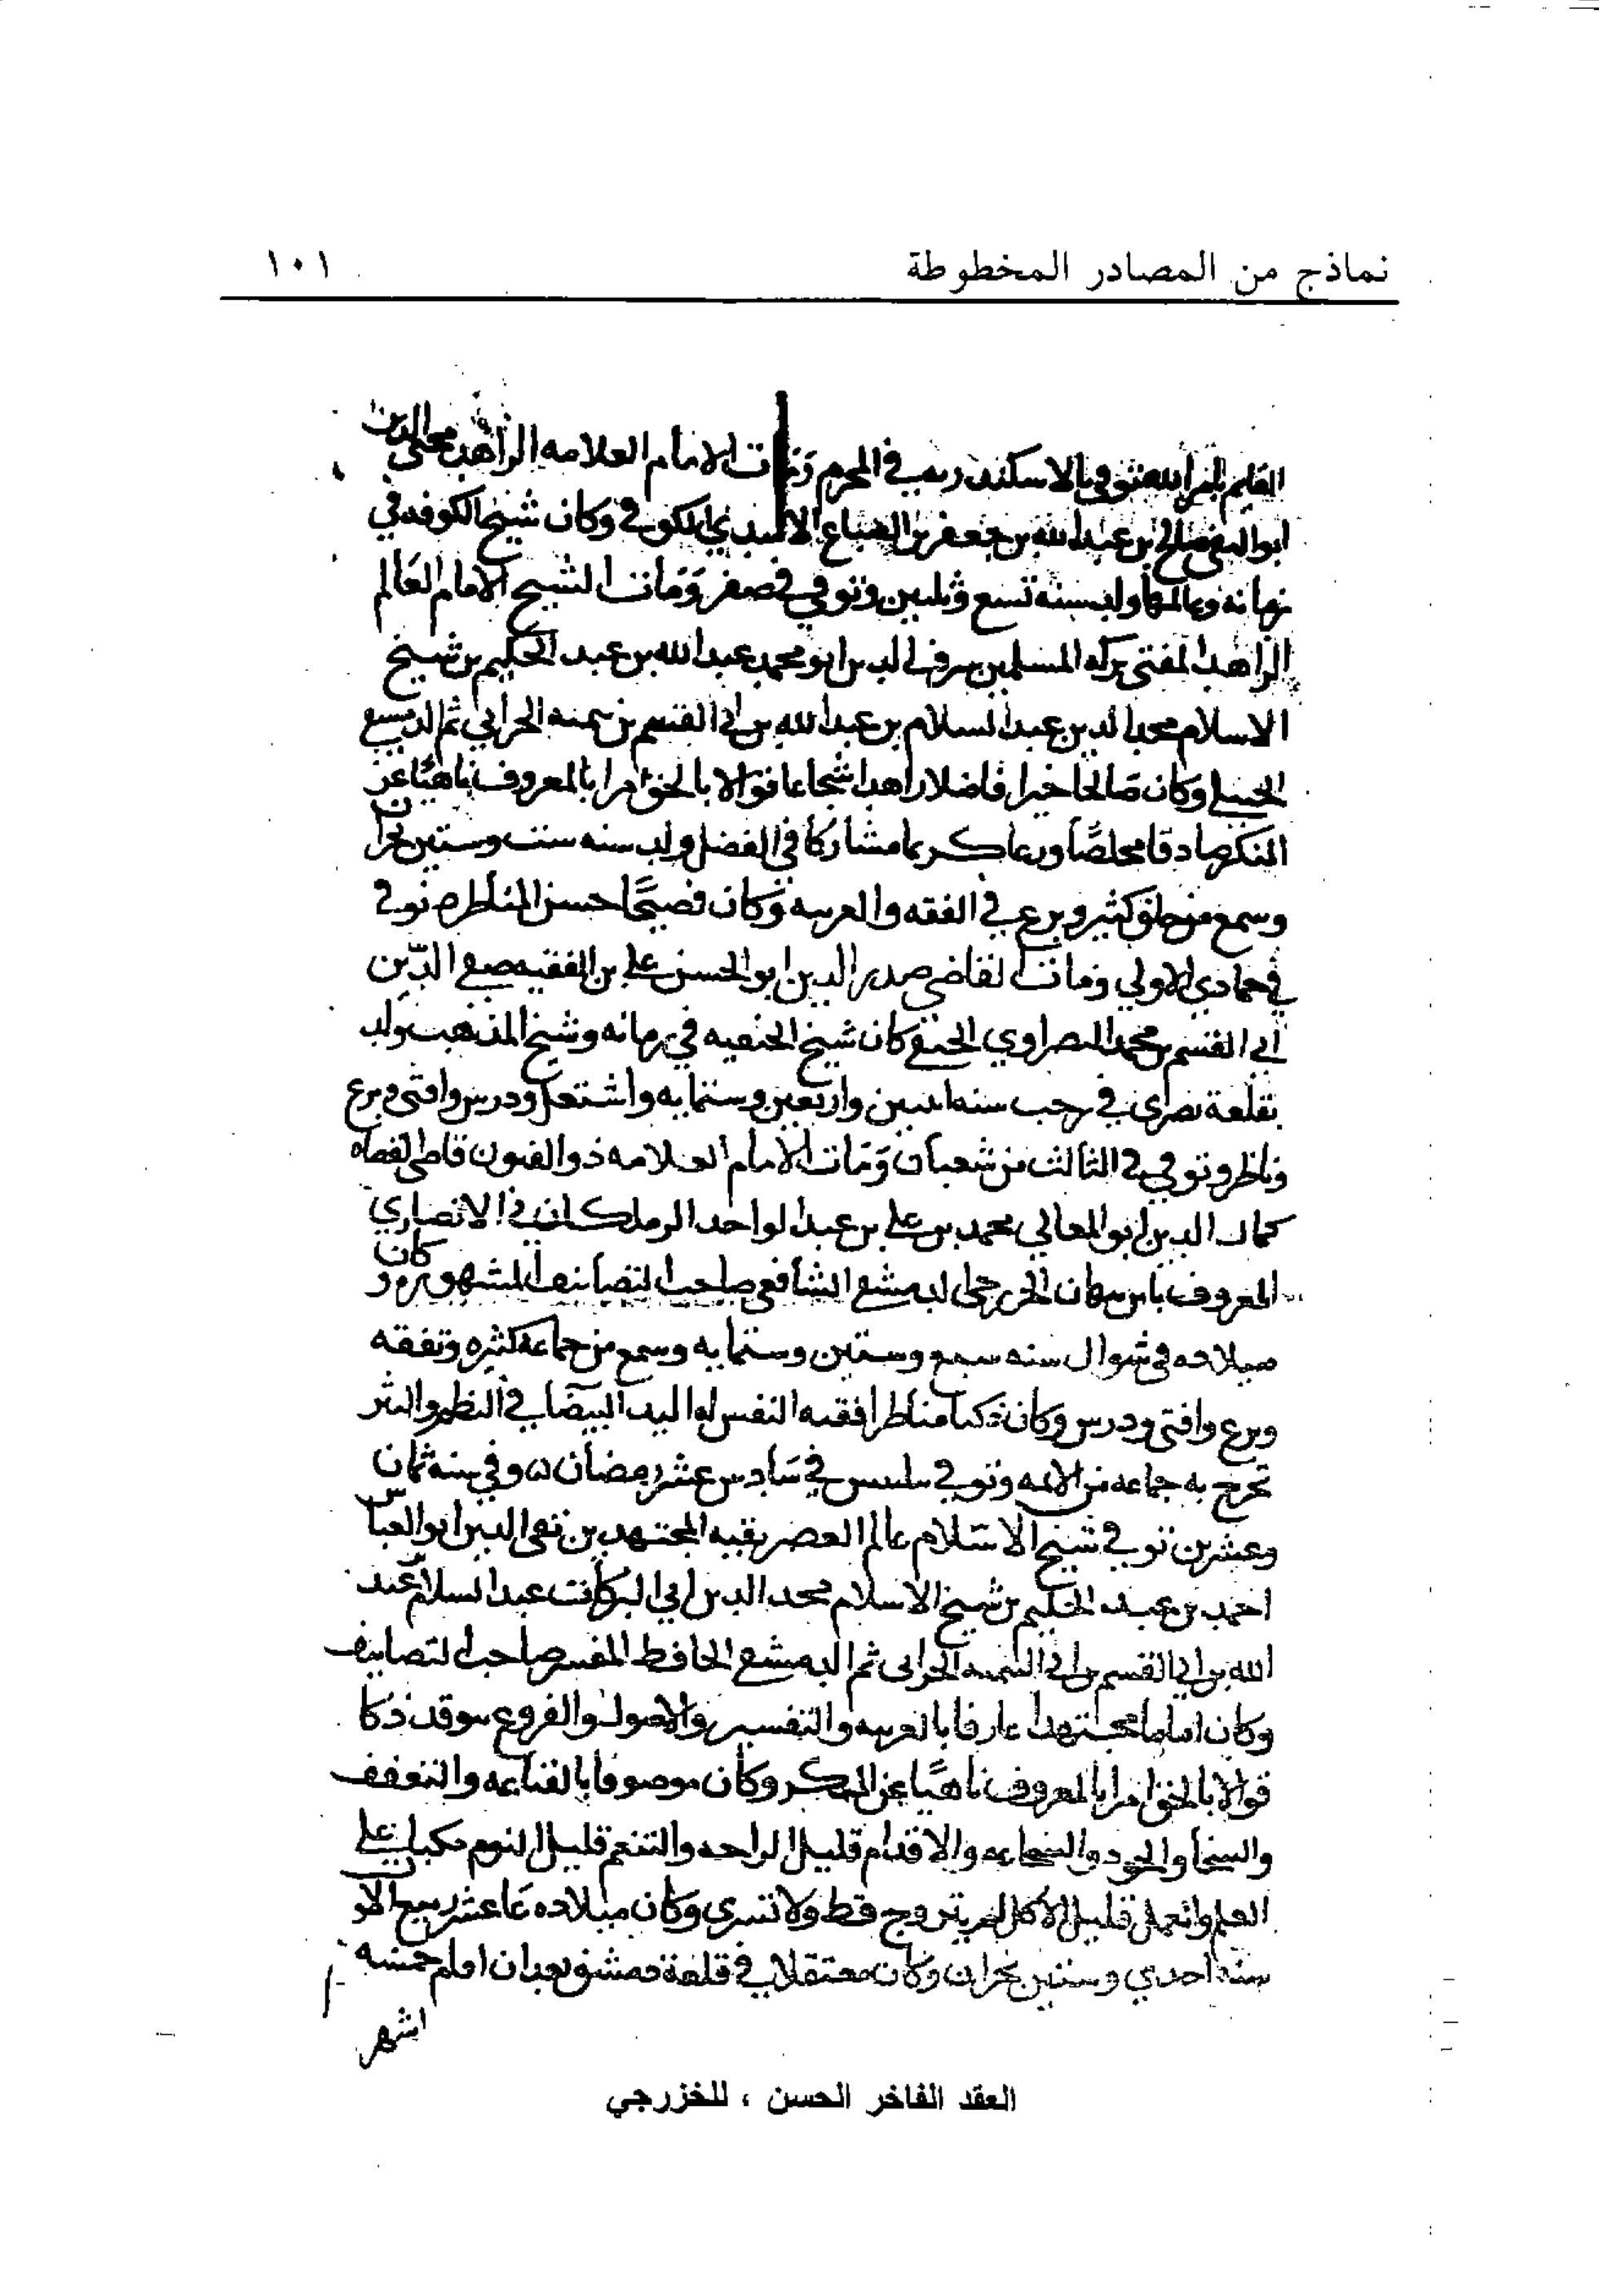 نماذج من المصادر المخطوطة ١٠١
القايم بامر الله توفي بالاسكندريه في المحرم ومات الامام العلامه الزاهد محيى الدين
ابو صالح بن عبد الله بن جعفر بن الصباع الاسدي الكوفي وكان شيخ الكوفه في
زمانه وعالمها ولد سنه تسع وثلثين وتوفي في صفر ومات الشيخ الامام العالم
الزاهد المفتى بركه المسلمين شرف الدين ابو محمد عبد الله بن عبد الحليم بن شيخ
الاسلام مجد الدين عبد السلام بن عبد الله بن ابي القسم بن تيميه الحراني ثم الدمشقي
الحنبلي وكان صالحا خيرا فاضلا زاهدا شجاعا قوالا بالحق امرا بالمعروف ناهيًا عن
المنكر صادقا مخلصًا ورعا كريما مشاركا في الفضل ولد سنه ست وستين بحران
وسمع من خلق كثير وبرع في الفقه والعربيه وكان فصيحًا حسن المناظره توفي
في جمادي الاولي ومات القاضي صدر الدين ابو الحسن علي بن الفقيه صفي الدين
ابي القسم بن محمد البصراوي الحنفي كان شيخ الحنفيه في زمانه وشيخ المذهب ولد
بقلعة بصرى في رجب سنه اثنين واربعين وستمايه واشتغل ودرس وافتى وبرع
وناظر وتوفي في الثالث من شعبان ومات الامام العلامه ذو الفنون قاضي القضاه
كمال الدين ابو المعالي محمد بن علي بن عبد الواحد الزملكاني الانصاري
المعروف بابن الخزرجي الدمشقي الشافعي صاحب التصانيف المشهوره وكان
ميلاده في شوال سنه سبع وستين وستمايه وسمع من جماعة كثيره وتفقه
وبرع وافتى ودرس وكان ذكيا مناظرا فقيه النفس له اليد البيضا في النظم والنثر
تخرج به جماعه من الايمه وتوفي في سادس عشر رمضان ٥ وفي سنه ثمان
وعشرين توفي شيخ الاسلام عالم العصر بقيه المجتهدين تقى الدين ابو العباس
احمد بن عبد الحليم بن شيخ الاسلام مجد الدين ابي البركات عبد السلام عبد
الله بن ابي القسم بن الحراني ثم الدمشقي الحافظ المفسر صاحب التصانيف
وكان اماما مجتهدا عارفا بالعربيه والتفسير والاصول والفروع ذكا
قوالا بالحق امرا بالمعروف ناهيًا عن المنكر وكان موصوفا بالقناعه والتعفف
والسخا والجود والشجاعه والاقدام قليل الراحه والتنعم قليل النوم مكبا على
العلم والعمل قليل الاكل لم يتزوج قط ولا تسرى وكان ميلاده عاشر ربيع الاول
سنه احدي وستين بحران وكان معتقلا في قلعة دمشق بعد ان اقام خمسه
اشهر
العقد الفاخر الحسن ، للخزرجي